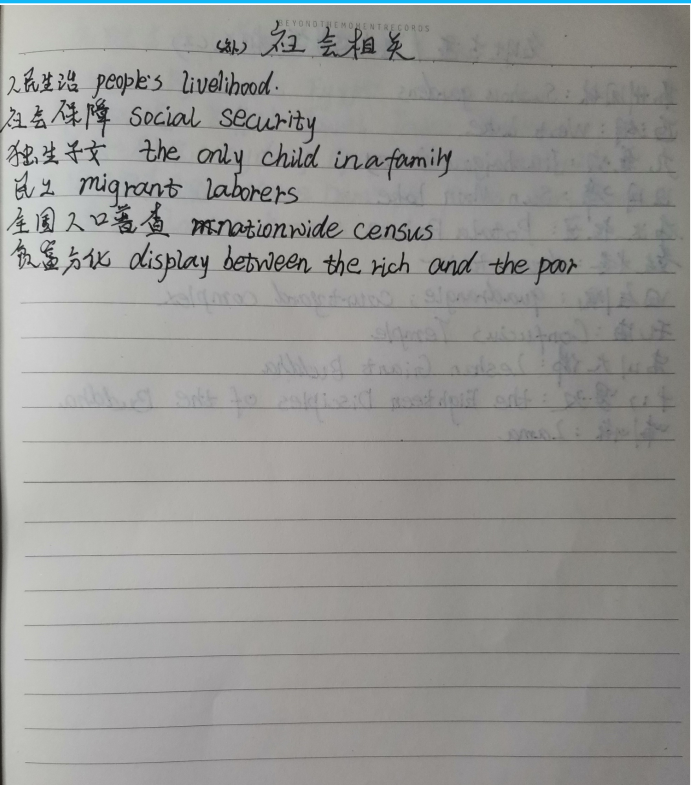 BEYONDTHEMOMENTRECORDS
(补) 社会相关
人民生活 people's livelihood.
社会保障 social security
独生子女 the only child in a family
民工 migrant laborers
全国人口普查 nationwide census
分化 display between the rich and the poor